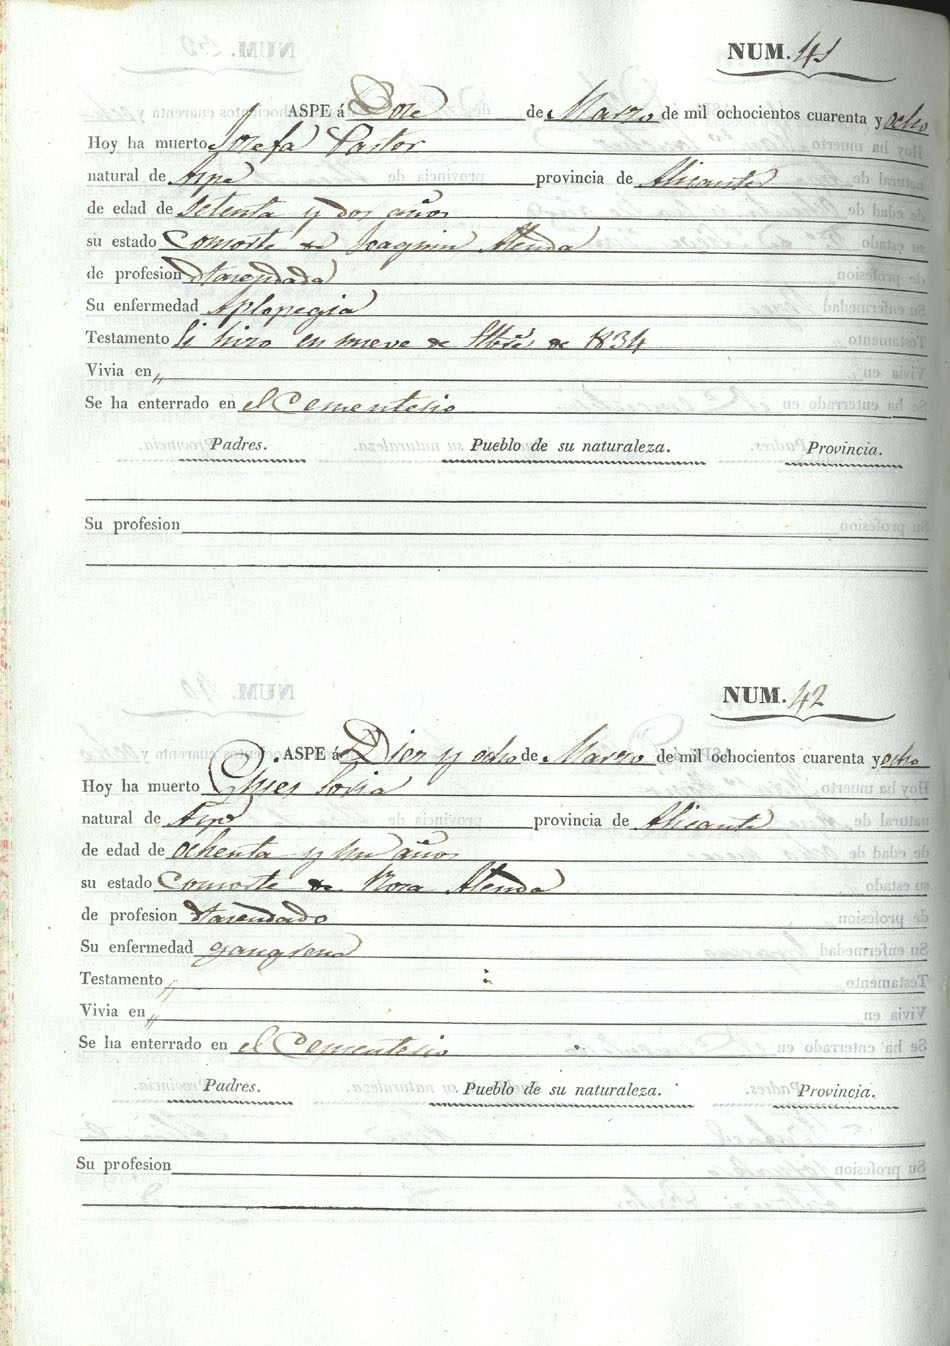 NUM. 41
ASPE á Doze de Marzo de mil ochocientos cuarenta y ocho
Hoy ha muerto Josefa Pastor
natural de Aspe provincia de Alicante
de edad de setenta y dos años
su estado Consorte de Joaquin Atenda
de profesion
Su enfermedad Aplopegia
Testamento Si hizo en nueve de de 1834
Vivia en „
Se ha enterrado en el Cementerio
Padres. Pueblo de su naturaleza. Provincia.
Su profesion
NUM. 42
ASPE á Diez y ocho de Marzo de mil ochocientos cuarenta y ocho
Hoy ha muerto Soria
natural de Aspe provincia de Alicante
de edad de ochenta y un años
su estado Consorte de Rosa Atenda
de profesion
Su enfermedad gangrena
Testamento „
Vivia en „
Se ha enterrado en el Cementerio
Padres. Pueblo de su naturaleza. Provincia.
Su profesion